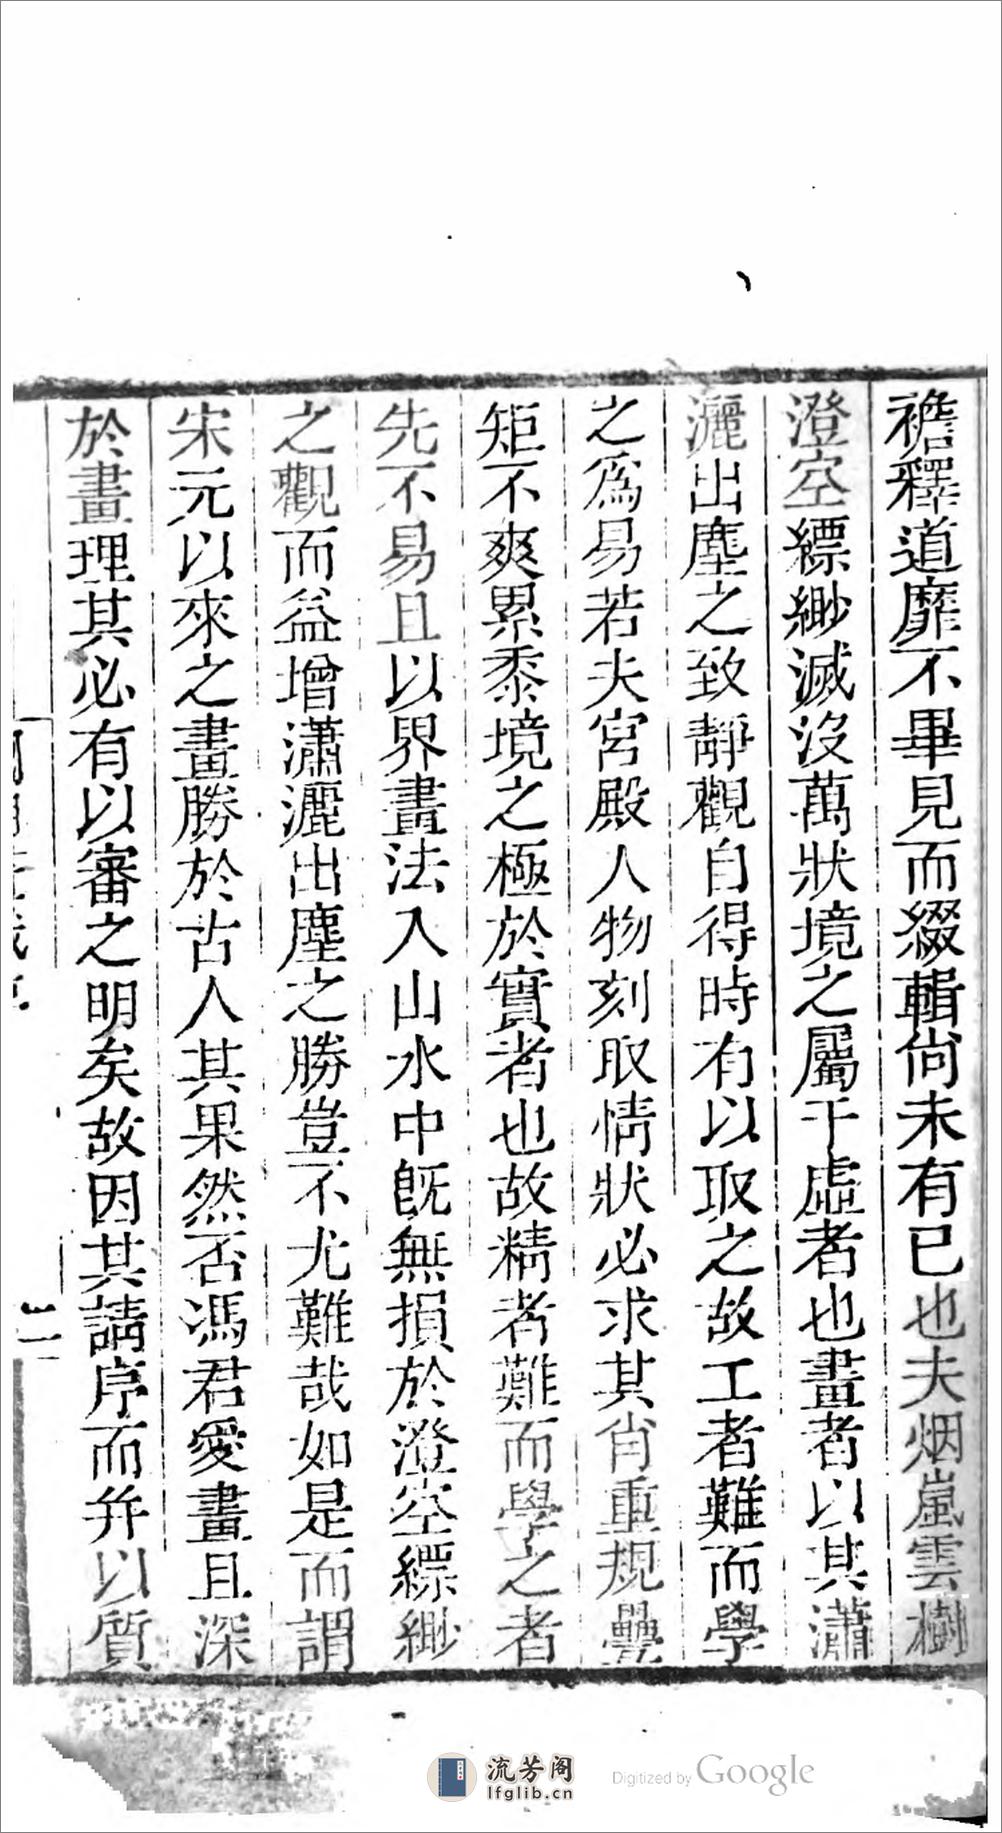 襜釋道靡不畢見而綴輯尙未有已也夫烟嵐雲樹
澄空縹緲滅沒萬狀境之屬于虛者也畫者以其瀟
灑出塵之致靜觀自得時有以取之故工者難而學
之爲易若夫宮殿人物刻取情狀必求其肖重規疊
矩不爽累黍境之極於實者也故精者難而學之者
先不易且以界畫法入山水中旣無損於澄空縹緲
之觀而益增瀟灑出塵之勝豈不尤難哉如是而謂
宋元以來之畫勝於古人其果然否馮君愛畫且深
於畫理其必有以審之明矣故因其請序而幷以質
流芳阁
lfglib.cn
Digitized by Google